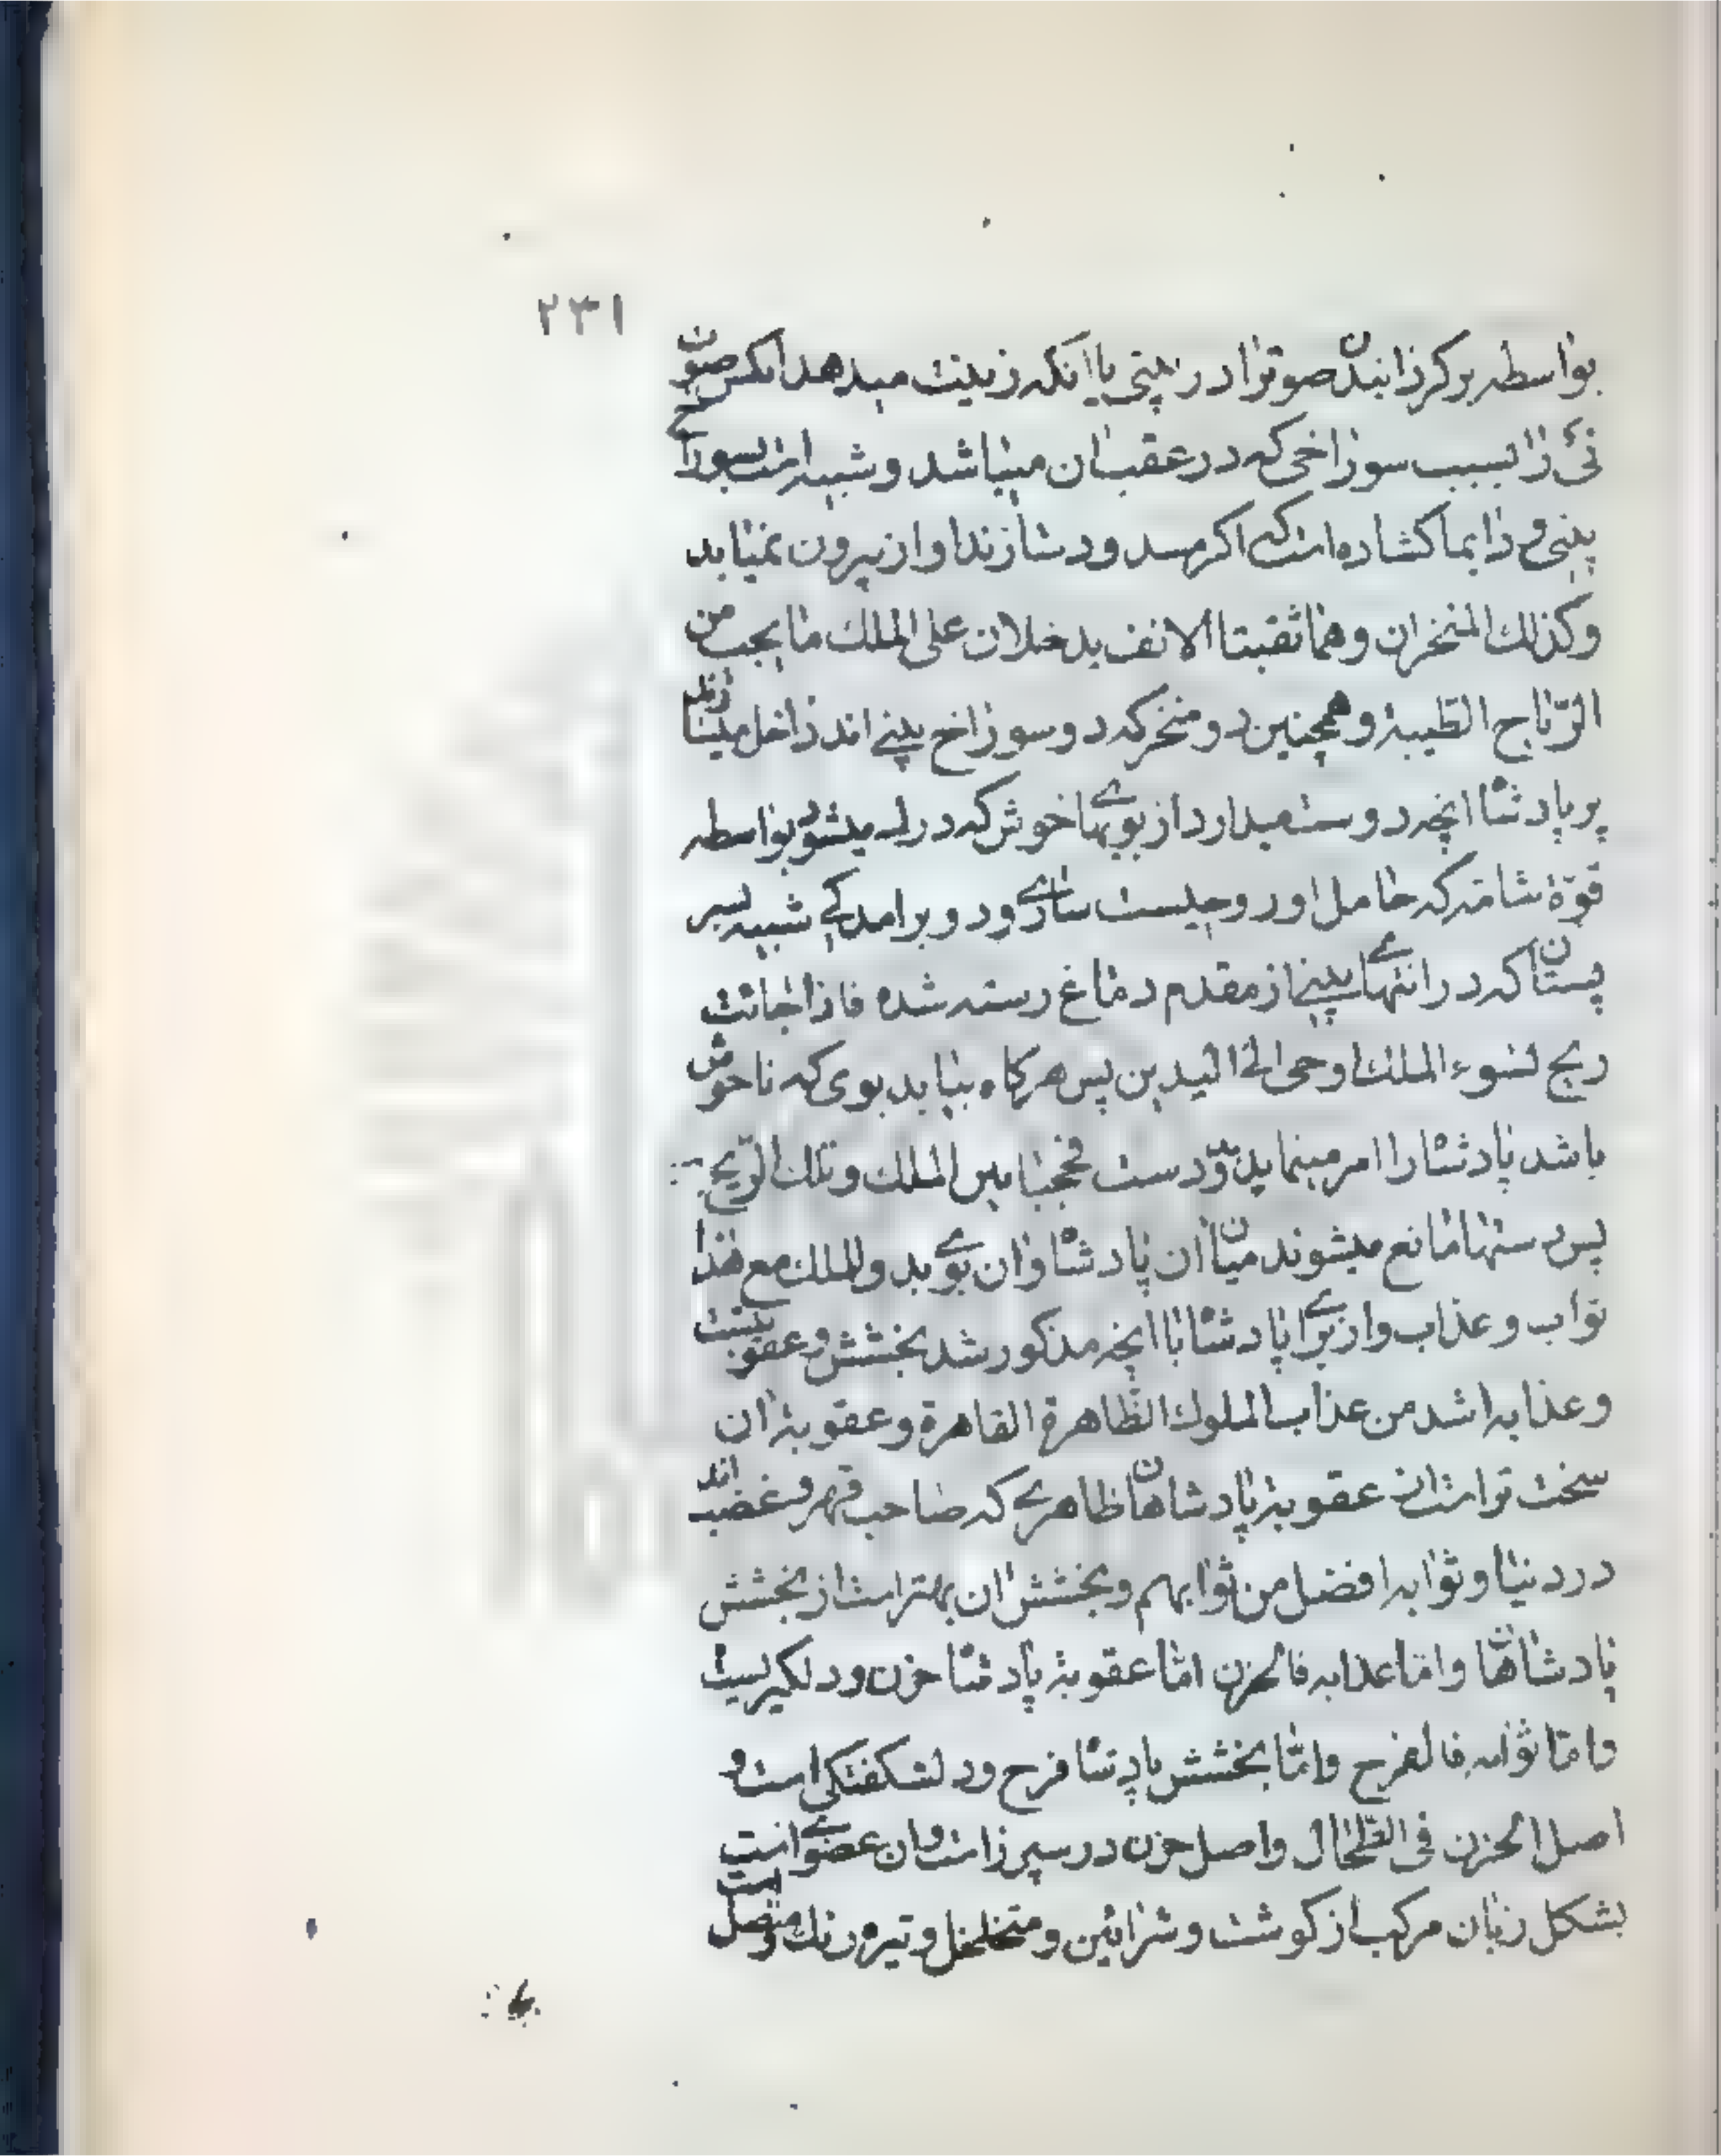 ۲۳۱
بواسطه برکردانیدن صوترا در بینی یا انکه زینت میدهد انکس صوت
نی را بسبب سوراخی که در عقب ان میباشد و شبیه است بسوراخ
بینی و دایما کشاده است که اکر مسدود سازند اواز بیرون نمیاید
وکذلك المنخران وهما ثقبتا الانف یدخلان علی الملك ما یحب من
الریاح الطیبة و همچنین دو منخر که دو سوراخ بینے اند داخل میسازند
بر پادشاه انچه دوست میدارد از بویهاے خوش که درك میشود بواسطه
قوة شامه که حامل او روحیست سارے در دو برامدکے شبیه بسر
پستان که در انتهاے بینے از مقدم دماغ رسته شده فاذا جائت
ریح تسوء الملك اوحی الی الیدین پس هرکاه بیاید بوی که ناخوش
باشد پادشاه را امر مینماید بدو دست فحجبا بین الملك وتلك الریح
پس دستها مانع میشوند میان ان پادشاه و ان بوے بد وللملك مع هذا
ثواب وعذاب و از براے پادشاه با انچه مذکور شد بخشش و عقوبتیست
وعذابه اشد من عذاب الملوك الظاهرة القاهرة و عقوبة ان
سخت تر است از عقوبة پادشاهان ظاهرے که صاحب قهر و غضب اند
در دنیا وثوابه افضل من ثوابهم و بخشش ان بهتر است از بخشش
پادشاهان واما عذابه فالحزن اما عقوبة پادشاه حزن و دلکیریست
واما ثوابه فالفرح واما بخشش پادشاه فرح و دلشکفتکی است و
اصل الحزن فی الطحال واصل حزن در سپرز است و ان عضوے است
بشکل زبان مرکب از کوشت و شرائین و متخلخل و تیره رنك و متصل است